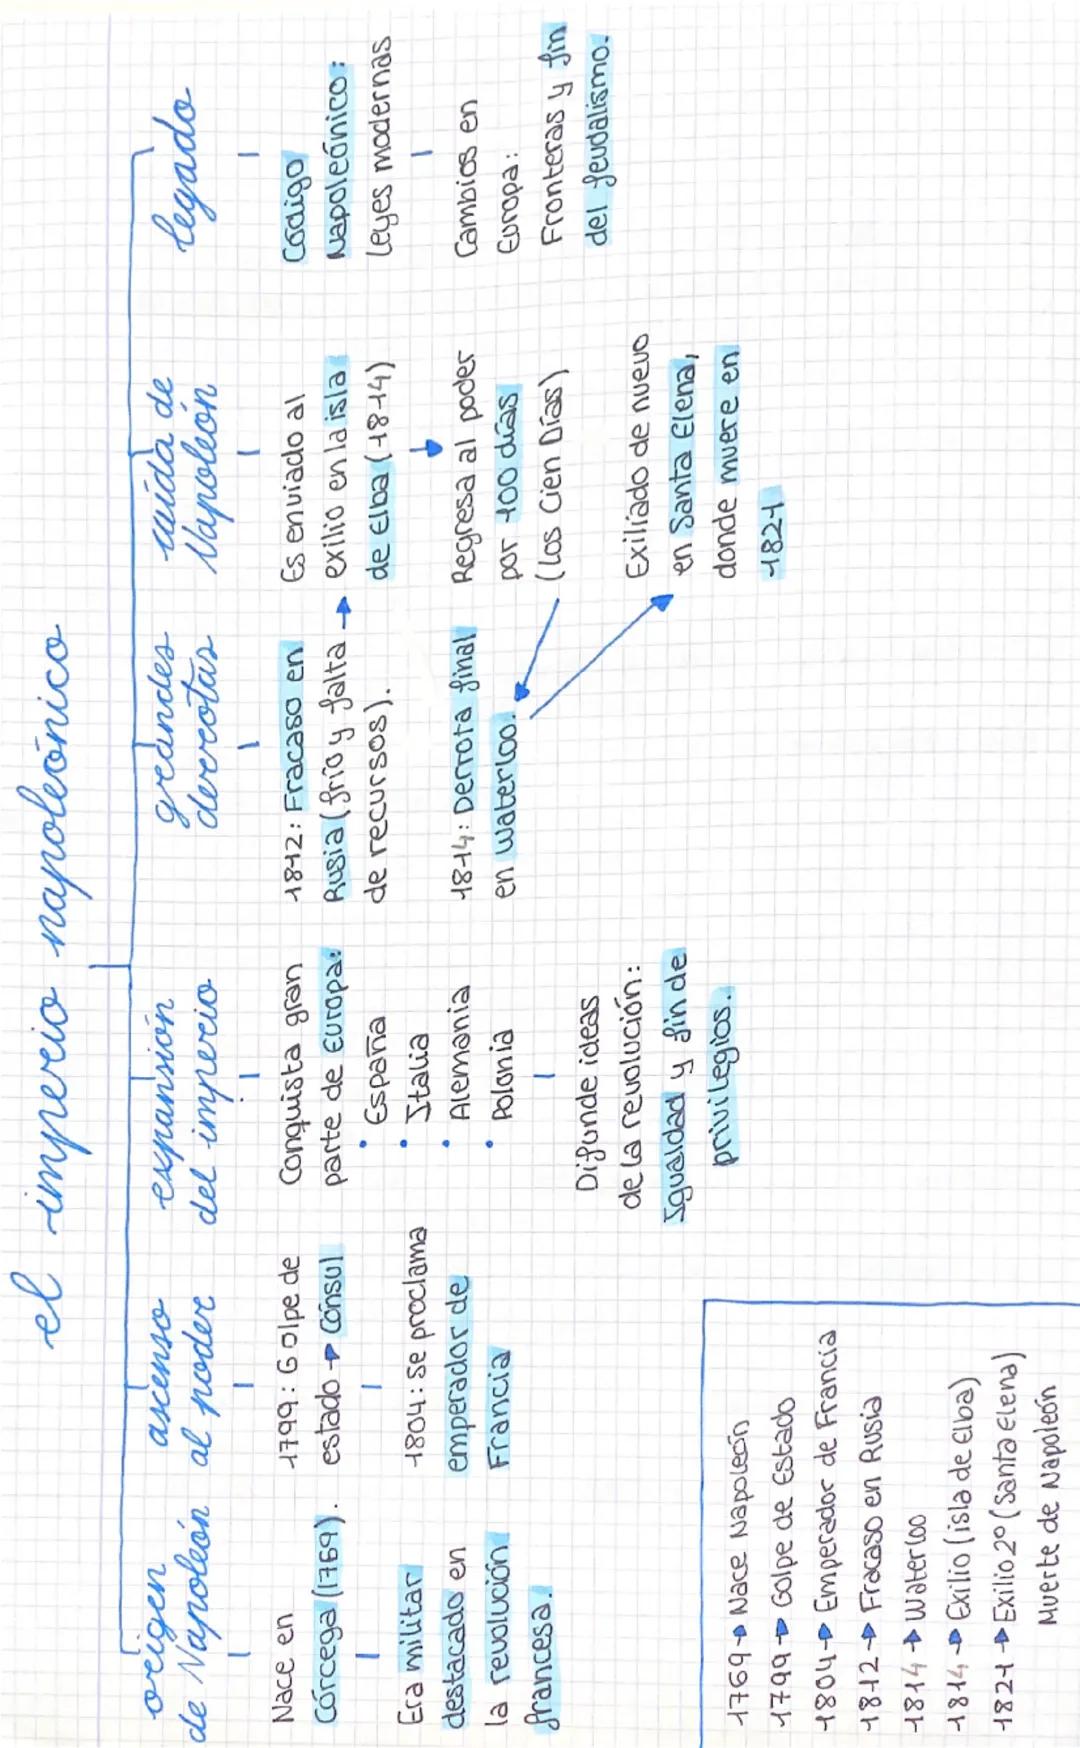 el imperio napoleónico
origen
de Napoleón
Nace en
Córcega (1769).
Era militar
destacado en
la revolución
francesa.
ascenso
al poder
1799: Golpe de
estado → Cónsul
1804: se proclama
emperador de
Francia
expansión
del imperio
Conquista gran
parte de Europa:
• España
• Italia
• Alemania
• Polonia
Difunde ideas
de la revolución:
Igualdad y fin de
privilegios.
grandes
derrotas
1812: Fracaso en
Rusia (frío y falta →
de recursos).
1814: Derrota final
en Waterloo.
caída de
Napoleón
Es enviado al
exilio en la isla
de Elba (1814)
Regresa al poder
por 100 días
(Los Cien Días)
Exiliado de nuevo
en Santa Elena,
donde muere en
1821
legado
Código
Napoleónico:
Leyes modernas
Cambios en
Europa:
Fronteras y fin
del feudalismo.
1769 → Nace Napoleón
1799 → Golpe de Estado
1804 → Emperador de Francia
1812 → Fracaso en Rusia
1814 → Waterloo
1814 → Exilio (isla de Elba)
1821 → Exilio 2º (Santa Elena)
Muerte de Napoleón